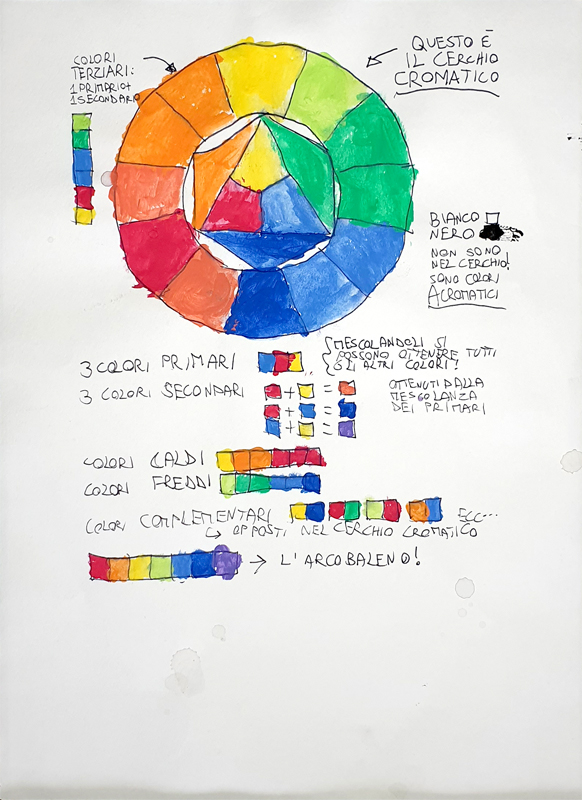 COLORI
TERZIARI:
1 PRIMARIO +
1 SECONDARIO
QUESTO È
IL CERCHIO
CROMATICO
BIANCO
NERO
NON SONO
NEL CERCHIO!
SONO COLORI
ACROMATICI
3 COLORI PRIMARI
MESCOLANDOLI SI
POSSONO OTTENERE TUTTI
GLI ALTRI COLORI!
3 COLORI SECONDARI
+ =
+ =
+ =
OTTENUTI DALLA
MESCOLANZA
DEI PRIMARI
COLORI CALDI
COLORI FREDDI
COLORI COMPLEMENTARI ECC...
OPPOSTI NEL CERCHIO CROMATICO
L'ARCOBALENO!